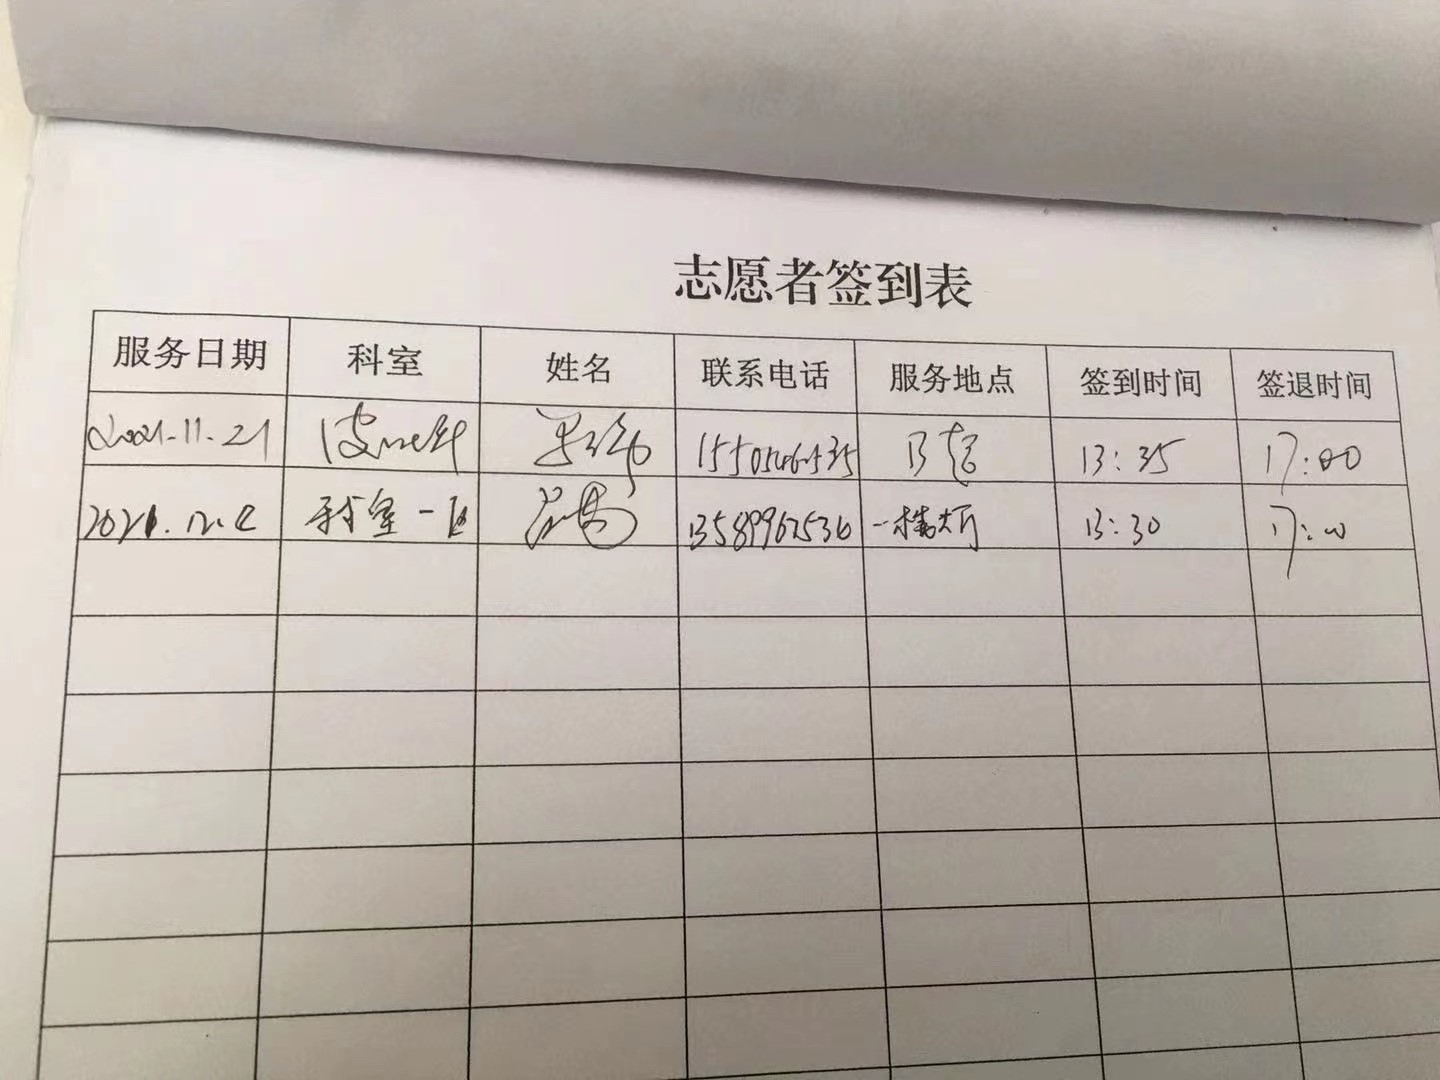 志愿者签到表
服务日期 科室 姓名 联系电话 服务地点 签到时间 签退时间
2021.11.21 皮肤科 B超 13:35 17:00
2021.12.2 手术室一区 13589967536 一楼大厅 13:30 17:00